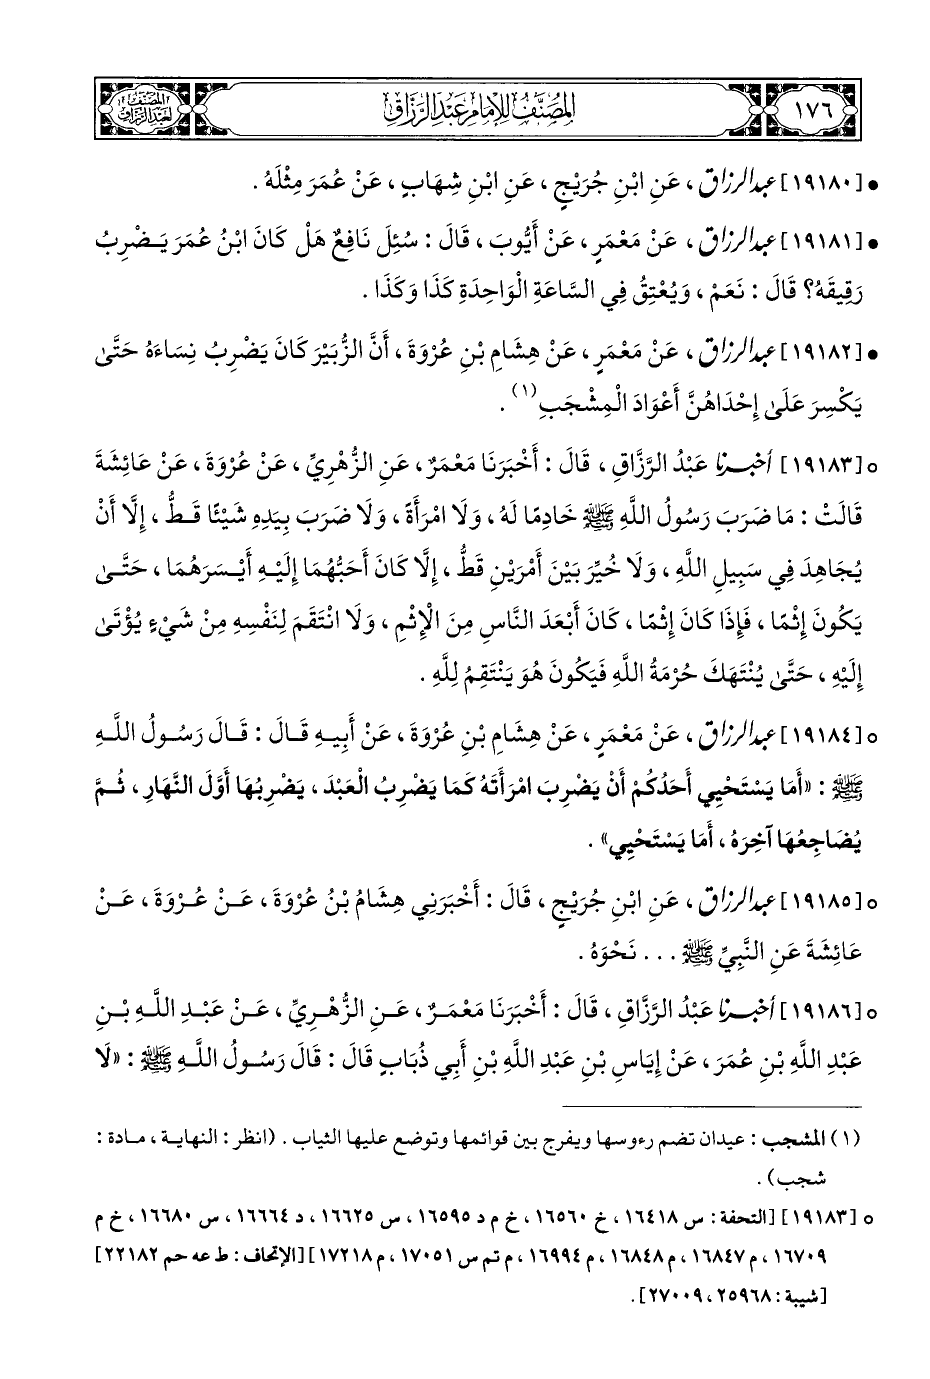 ١٧٦
المُصَنَّفُ لِلإِمَامِ عَبْدِ الرَّزَّاقِ
المصنف
لعبد الرزاق
• [١٩١٨٠] عبد الرزاق ، عَنِ ابْنِ جُرَيْجٍ ، عَنِ ابْنِ شِهَابٍ ، عَنْ عُمَرَ مِثْلَهُ .
• [١٩١٨١] عبد الرزاق ، عَنْ مَعْمَرٍ ، عَنْ أَيُّوبَ ، قَالَ : سُئِلَ نَافِعٌ هَلْ كَانَ ابْنُ عُمَرَ يَضْرِبُ
رَقِيقَهُ؟ قَالَ : نَعَمْ ، وَيُعْتِقُ فِي السَّاعَةِ الْوَاحِدَةِ كَذَا وَكَذَا .
• [١٩١٨٢] عبد الرزاق ، عَنْ مَعْمَرٍ ، عَنْ هِشَامِ بْنِ عُرْوَةَ ، أَنَّ الزُّبَيْرَ كَانَ يَضْرِبُ نِسَاءَهُ حَتَّىٰ
يَكْسِرَ عَلَىٰ إِحْدَاهُنَّ أَعْوَادَ الْمِشْجَبِ(١) .
٥ [١٩١٨٣] أخبرنا عَبْدُ الرَّزَّاقِ ، قَالَ : أَخْبَرَنَا مَعْمَرٌ ، عَنِ الزُّهْرِيِّ ، عَنْ عُرْوَةَ ، عَنْ عَائِشَةَ
قَالَتْ : مَا ضَرَبَ رَسُولُ اللَّهِ ﷺ خَادِمًا لَهُ ، وَلَا امْرَأَةً ، وَلَا ضَرَبَ بِيَدِهِ شَيْئًا قَطُّ ، إِلَّا أَنْ
يُجَاهِدَ فِي سَبِيلِ اللَّهِ ، وَلَا خُيِّرَ بَيْنَ أَمْرَيْنِ قَطُّ ، إِلَّا كَانَ أَحَبُّهُمَا إِلَيْهِ أَيْسَرَهُمَا ، حَتَّىٰ
يَكُونَ إِثْمًا ، فَإِذَا كَانَ إِثْمًا ، كَانَ أَبْعَدَ النَّاسِ مِنَ الْإِثْمِ ، وَلَا انْتَقَمَ لِنَفْسِهِ مِنْ شَيْءٍ يُؤْتَىٰ
إِلَيْهِ ، حَتَّىٰ يُنْتَهَكَ حُرْمَةُ اللَّهِ فَيَكُونُ هُوَ يَنْتَقِمُ لِلَّهِ .
٥ [١٩١٨٤] عبد الرزاق ، عَنْ مَعْمَرٍ ، عَنْ هِشَامِ بْنِ عُرْوَةَ ، عَنْ أَبِيهِ قَالَ : قَالَ رَسُولُ اللَّهِ
ﷺ : «أَمَا يَسْتَحْيِي أَحَدُكُمْ أَنْ يَضْرِبَ امْرَأَتَهُ كَمَا يَضْرِبُ الْعَبْدَ ، يَضْرِبُهَا أَوَّلَ النَّهَارِ ، ثُمَّ
يُضَاجِعُهَا آخِرَهُ ، أَمَا يَسْتَحْيِي» .
٥ [١٩١٨٥] عبد الرزاق ، عَنِ ابْنِ جُرَيْجٍ ، قَالَ : أَخْبَرَنِي هِشَامُ بْنُ عُرْوَةَ ، عَنْ عُرْوَةَ ، عَنْ
عَائِشَةَ عَنِ النَّبِيِّ ﷺ . . . نَحْوَهُ .
٥ [١٩١٨٦] أخبرنا عَبْدُ الرَّزَّاقِ ، قَالَ : أَخْبَرَنَا مَعْمَرٌ ، عَنِ الزُّهْرِيِّ ، عَنْ عَبْدِ اللَّهِ بْنِ
عَبْدِ اللَّهِ بْنِ عُمَرَ ، عَنْ إِيَاسِ بْنِ عَبْدِ اللَّهِ بْنِ أَبِي ذُبَابٍ قَالَ : قَالَ رَسُولُ اللَّهِ ﷺ : «لَا
(١) المشجب : عيدان تضم رءوسها ويفرج بين قوائمها وتوضع عليها الثياب . (انظر : النهاية ، مادة :
شجب) .
٥ [١٩١٨٣] [التحفة : س ١٦٤١٨ ، خ ١٦٥٦٠ ، خ م د ١٦٥٩٥ ، س ١٦٦٢٥ ، د ١٦٦٦٤ ، س ١٦٦٨٠ ، خ م
١٦٧٠٩ ، م ١٦٨٤٧ ، م ١٦٨٤٨ ، م ١٦٩٩٤ ، م تم س ١٧٠٥١ ، م ١٧٢١٨] [الإتحاف : ط عه حم ٢٢١٨٢]
[شيبة : ٢٥٩٦٨ ، ٢٧٠٠٩] .